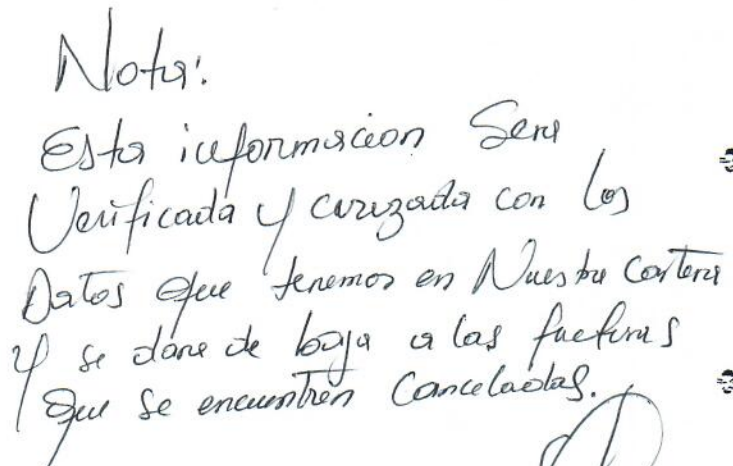 Nota:
Esta informacion Sera
Verificada y cruzada con los
Datos que tenemos en Nuestra Cartera
Y se dara de baja a las facturas
que se encuentren Canceladas.